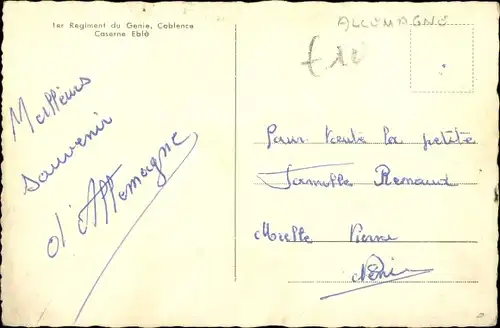 1er Regiment du Genie, Coblence
Caserne Eblé
ALLEMAGNE
Meilleurs
souvenir
d'Allemagne
Pour toute la petite
Famille Renaud
Pierre